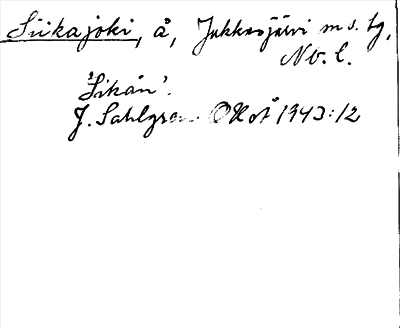 Siikajoki, å, Jukkasjärvi sn o. tg,
Nb. l.
'Sikån'.
J. Sahlgren OKoÅ 1943:12